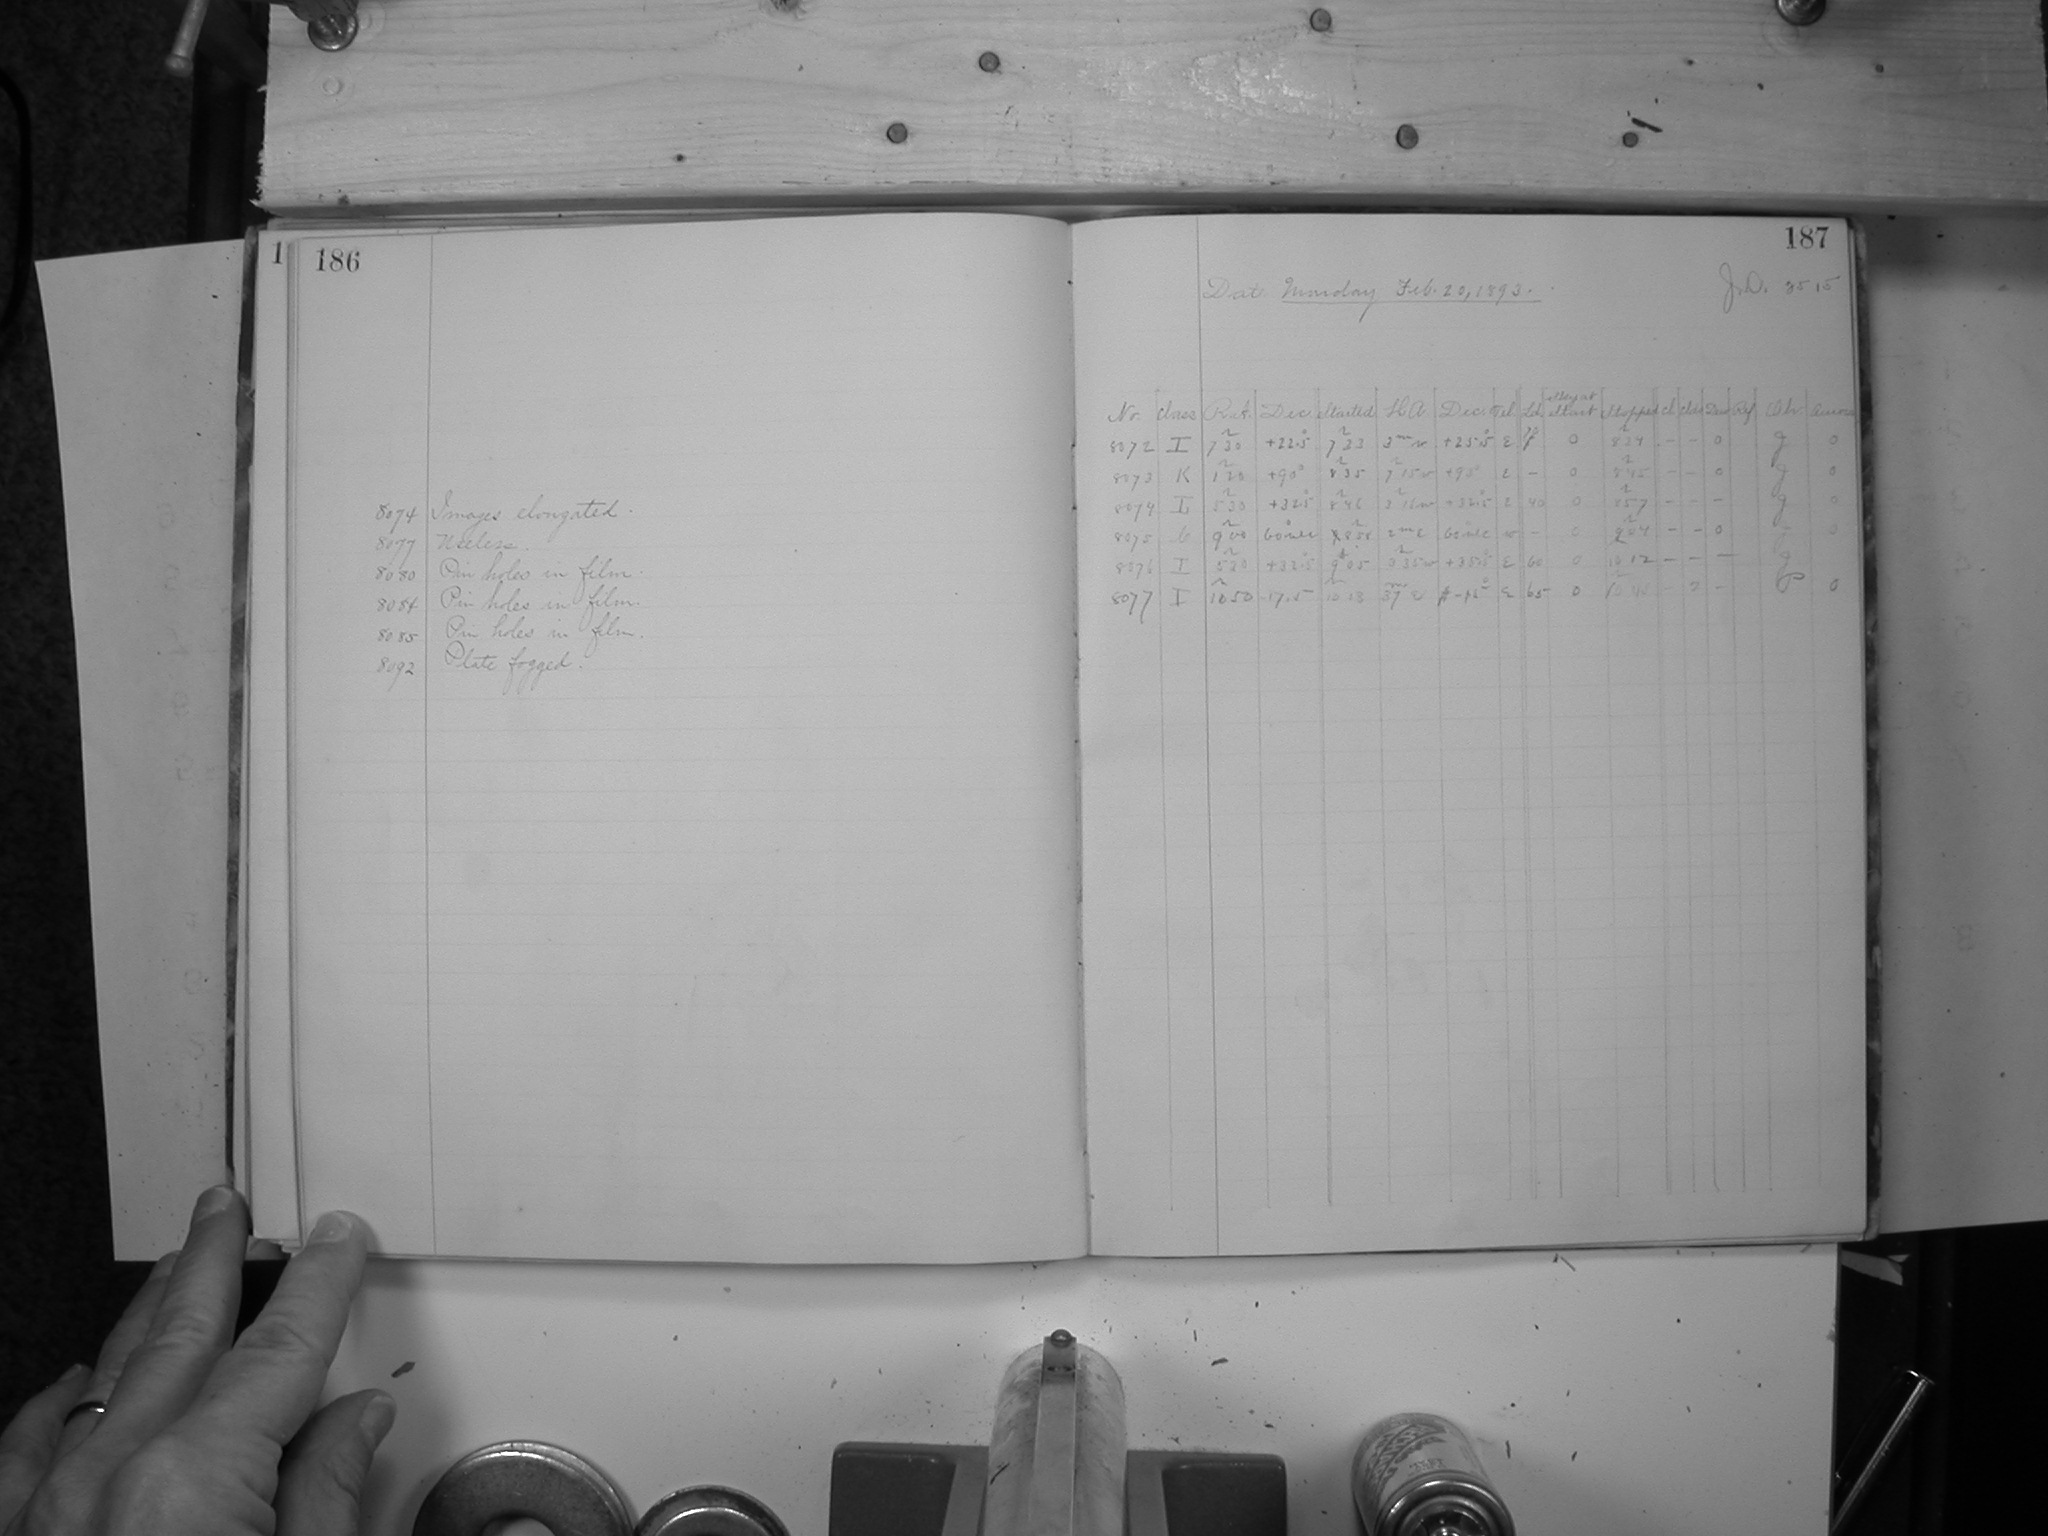 1
186
8074 Images elongated.
8077 Useless.
8080 Pin holes in film.
8084 Pin holes in film.
8085 Pin holes in film.
8092 Plate fogged.
187
Date Monday Feb. 20, 1893.
J.D. 3515
No. Class R.A. Dec. Started H.A. Dec. Tel. Start Stopped Cl. Obs.
8072 I 7 30 +22.5 7 33 3m w +25.5 E 0 8 34 - - 0 g 0
8073 K 1 20 +90° 8 35 7 15 w +90° E - 0 8 45 - - 0 g 0
8074 I 5 30 +32.5 8 46 3 16 w +32.5 E 40 0 8 57 - - - g 0
8075 C 9 00 2m E - 0 - - 0 0
8076 I 5 30 +32.5 9 05 +35.5 E 60 0 10 12 - - - g
8077 I 10 50 -17.5 10 13 37m E E 65 0 - 2 - 0